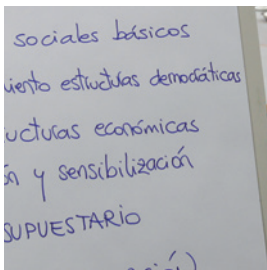 sociales básicos
iento estructuras democráticas
ucturas económicas
ón y sensibilización
SUPUESTARIO